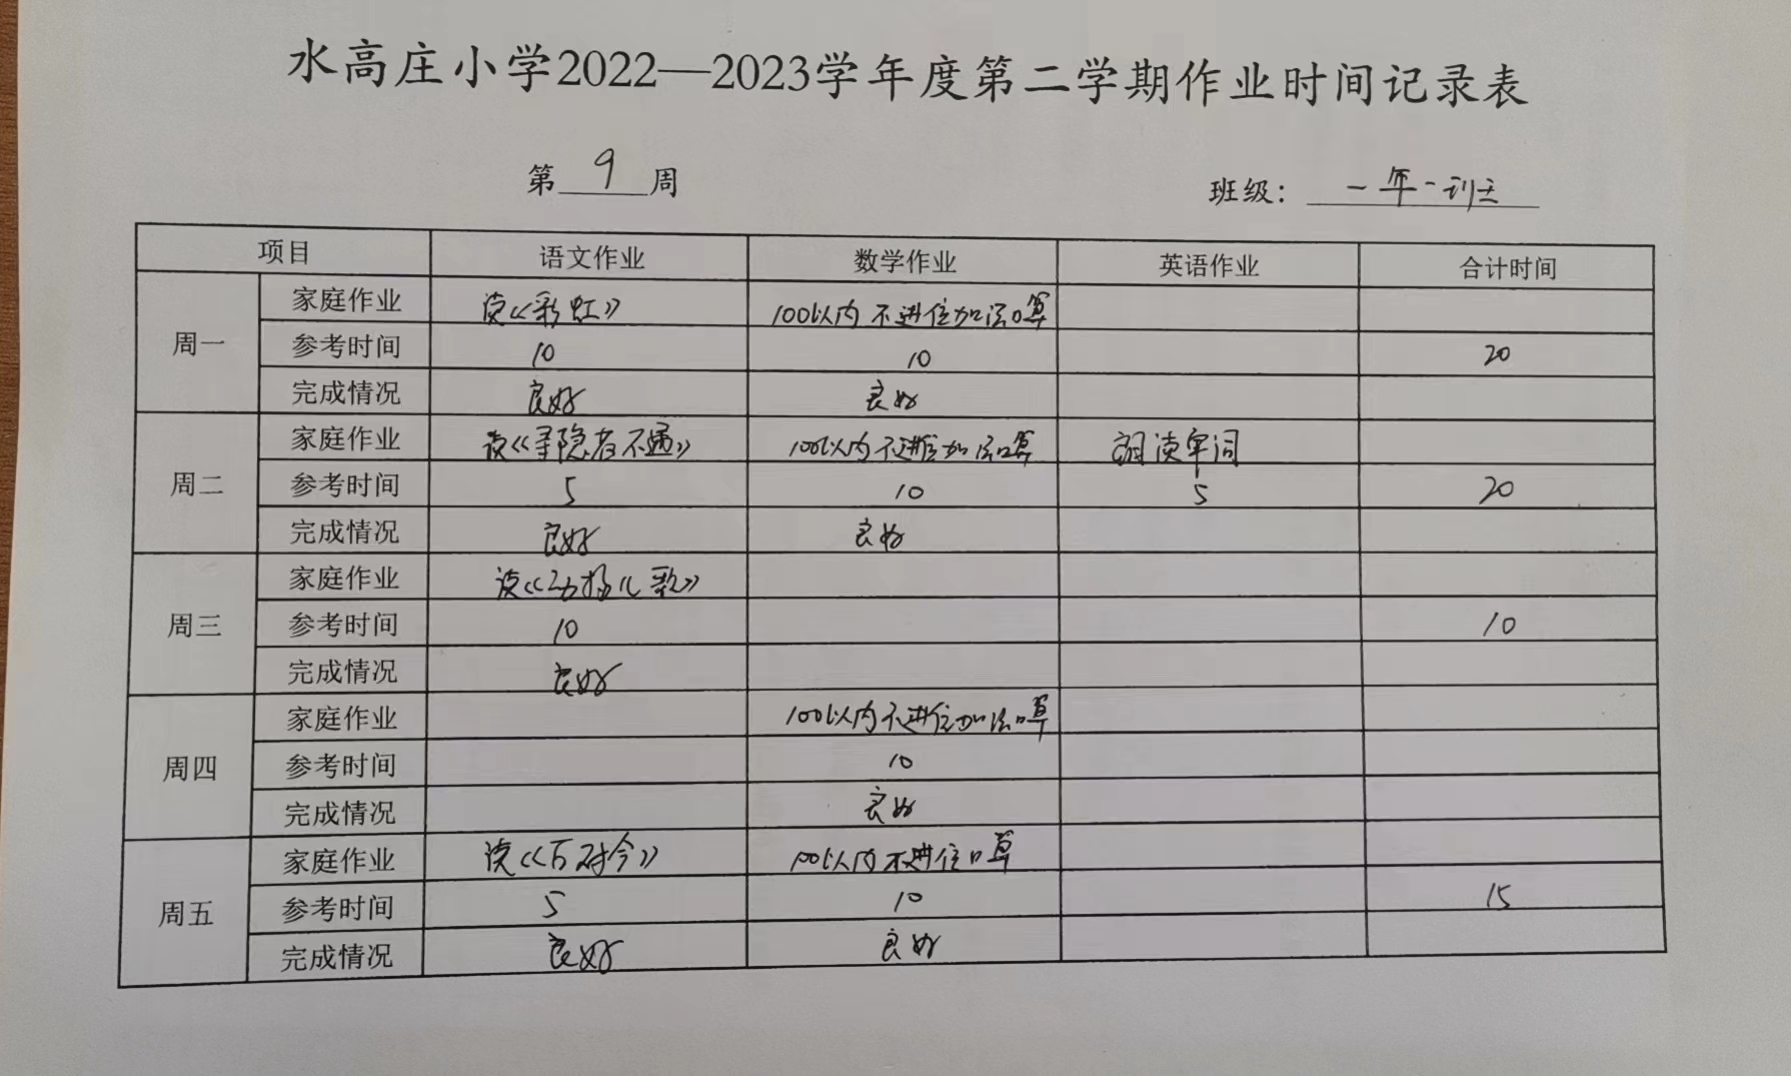 水高庄小学2022—2023学年度第二学期作业时间记录表
第 9 周 班级： 一年一班
项目 语文作业 数学作业 英语作业 合计时间
周一
家庭作业 读《彩虹》 100以内不进位加法口算
参考时间 10 10 20
完成情况 良好 良好
周二
家庭作业 读《寻隐者不遇》 100以内不进位加法口算 朗读单词
参考时间 5 10 5 20
完成情况 良好 良好
周三
家庭作业 读《动物儿歌》
参考时间 10 10
完成情况 良好
周四
家庭作业 100以内不进位加法口算
参考时间 10
完成情况 良好
周五
家庭作业 读《古对今》 100以内不进位口算
参考时间 5 10 15
完成情况 良好 良好